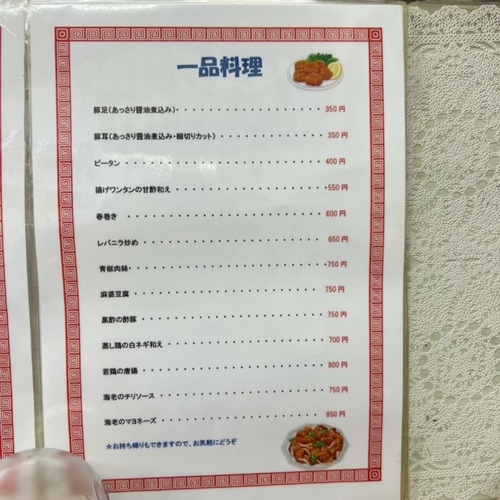 一品料理
豚足(あっさり醤油煮込み)・・・・・・・・・・・・・・・・・・・350円
豚耳(あっさり醤油煮込み・細切りカット)・・・・・・・・・・・・・・350円
ピータン・・・・・・・・・・・・・・・・・・・・・・・・・・400円
揚げワンタンの甘酢和え・・・・・・・・・・・・・・・・・・・・550円
春巻き・・・・・・・・・・・・・・・・・・・・・・・・・・600円
レバニラ炒め・・・・・・・・・・・・・・・・・・・・・・・・650円
青椒肉絲・・・・・・・・・・・・・・・・・・・・・・・・・750円
麻婆豆腐・・・・・・・・・・・・・・・・・・・・・・・・・750円
黒酢の酢豚・・・・・・・・・・・・・・・・・・・・・・・・750円
蒸し鶏の白ネギ和え・・・・・・・・・・・・・・・・・・・・・700円
若鶏の唐揚・・・・・・・・・・・・・・・・・・・・・・・・800円
海老のチリソース・・・・・・・・・・・・・・・・・・・・・・750円
海老のマヨネーズ・・・・・・・・・・・・・・・・・・・・・・850円
☆お持ち帰りもできますので、お気軽にどうぞ